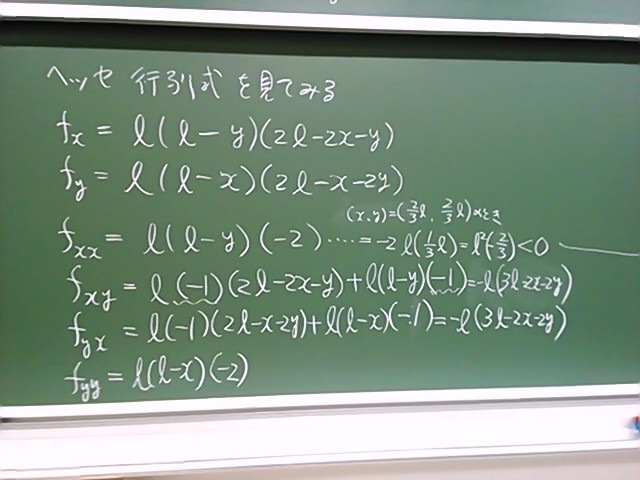 ヘッセ 行列式 を見てみる
fx = l(l-y)(2l-2x-y)
fy = l(l-x)(2l-x-2y)
(x,y)=(2/3 l, 2/3 l)のとき
fxx = l(l-y)(-2) ‥‥ = -2l(1/3 l) = l²(-2/3) < 0
fxy = l(-1)(2l-2x-y)+l(l-y)(-1)=-l(3l-2x-2y)
fyx = l(-1)(2l-x-2y)+l(l-x)(-1)=-l(3l-2x-2y)
fyy = l(l-x)(-2)